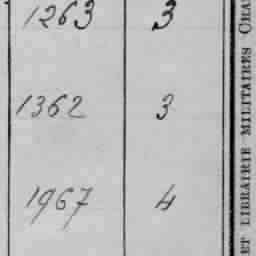 1263 3
1362 3
1967 4
ET LIBRAIRIE MILITAIRES